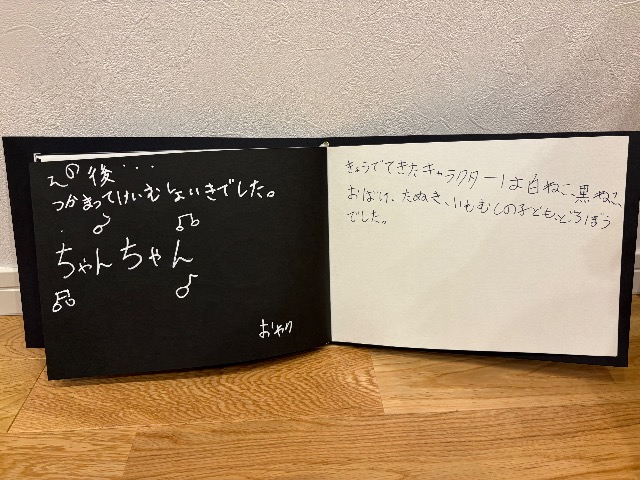 その後・・・
つかまってけいむしょいきでした。
♪ ♫
ちゃんちゃん
♫ ♪
おわり
きょうでてきたキャラクターは白ねこ、黒ねこ、
おばけ、たぬき、いもむしの子ども、どろぼう
でした。